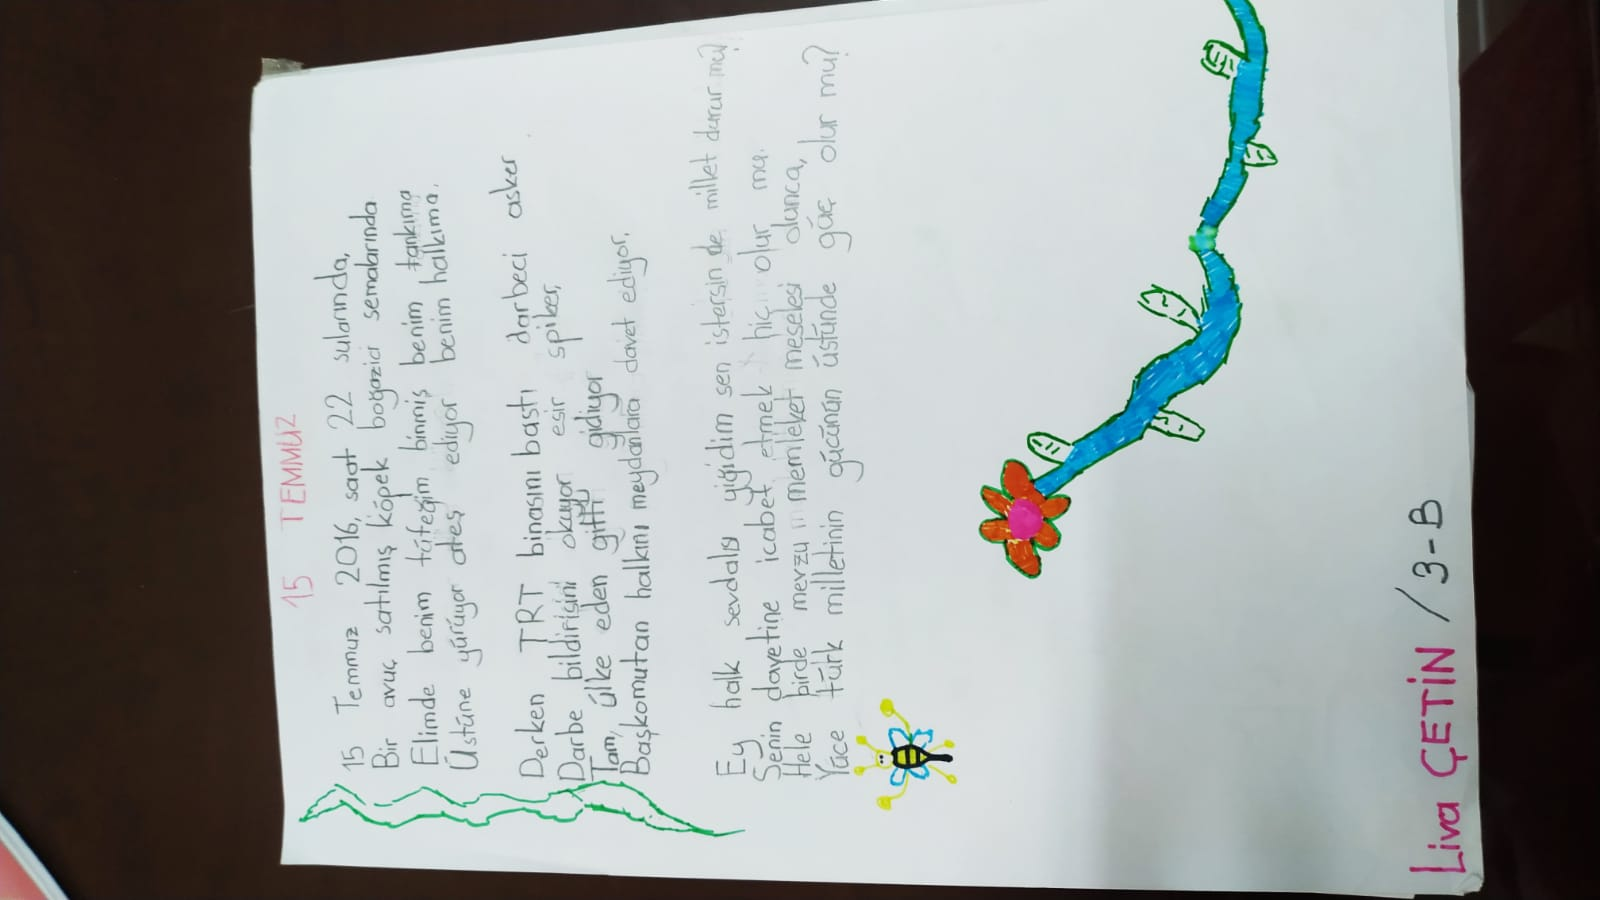 15 TEMMUZ
15 Temmuz 2016, saat 22 sularında,
Bir avuç satılmış köpek boğazici semalarında
Elimde benim tüfeğim binmiş benim tankıma
Üstüne yürüyor ateş ediyor benim halkıma.
Derken TRT binasını bastı darbeci asker
Darbe bildirisini okuyor esir spiker,
Tam, ülke eden gitti gidiyor
Başkomutan halkını meydanlara davet ediyor.
Ey halk sevdalısı yiğidim sen istersin de millet durur mu?
Senin davetine icabet etmek hiç olur mu.
Hele birde mevzu memleket meselesi olunca,
Yüce türk milletinin gücünün üstünde güç olur mu?
Liva ÇETİN / 3-B